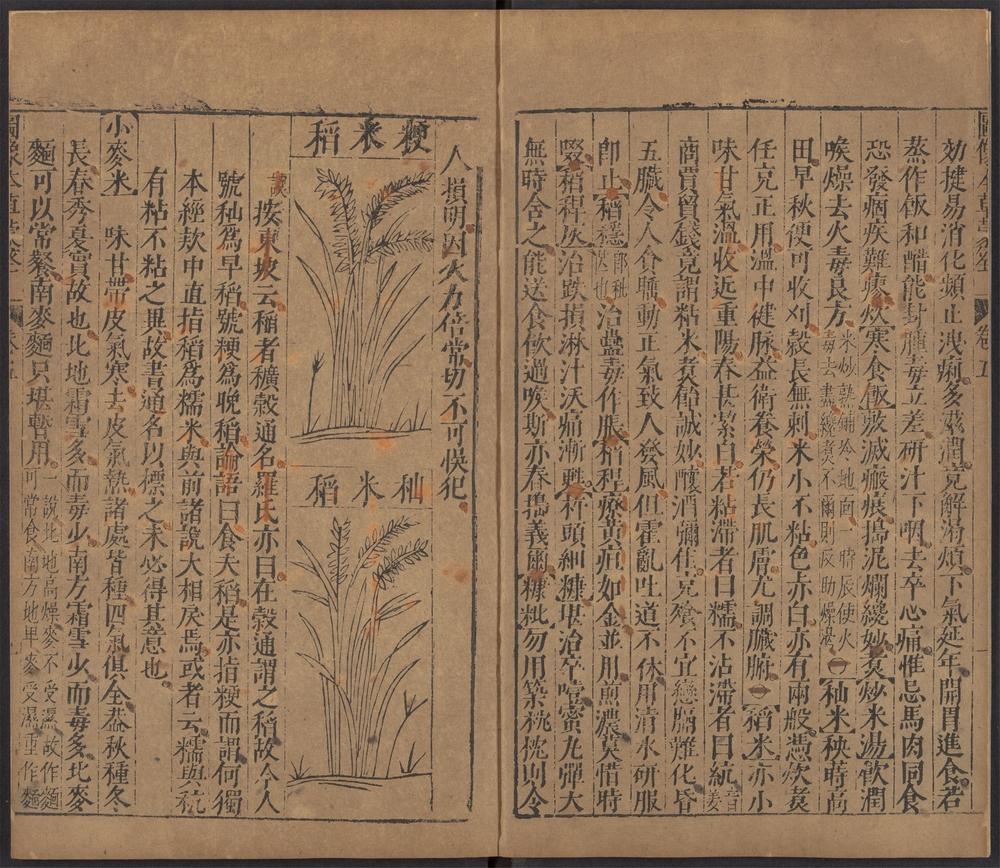 効揵易消化頻止洩痢多滋潤竟解渴煩下氣延年開胃進食若
蒸作飯和醋能封腫毒立差研汁下咽去卒心痛惟忌馬肉同食
恐發痼疾難痊炊寒食飯滅瘢痕搗泥爛纔妙炙炒米湯飲潤
喉燥去火毒良方
米炒熟鋪冷地面一時辰使火
毒去盡纔煑不爾則反助燥渴
秈米秧蒔高
田早秋便可收刈穀長無刺米小不粘色亦白亦有兩般憑炊煑
任充正用溫中健脉益衛養榮仍長肌膚尤調臟腑稻米亦小
味甘氣溫收近重陽舂甚潔白若粘滯者曰糯不沾滯者曰秔
商賈貿錢竟謂粘米煑飴誠妙釀酒彌佳充飡不宜戀膈難化昏
五臟令人貪動正氣致人發風但霍亂吐逆不休用清水研服
卽止稻穩
治蠱毒作脹稻稈療黃疸如金並用煎濃莫惜時
啜稻稈灰治跌損淋汁沃痛漸甦杵頭細糠堪治卒噎蜜丸彈大
無時含之能送食飲過喉斯亦舂搗義爾糠粃勿用築枕枕則令
人損明因火力倍常切不可悞犯
粳米稻
秈米稻
謨按東坡云稻者穬穀通名羅氏亦曰在穀通謂之稻故今人
號秈爲早稻號粳爲晚稻論語曰食夫稻是亦指粳而謂何獨
本經欵中直指稻爲糯米與前諸說大相戾焉或者云糯與秔
有粘不粘之異故書通名以標之未必得其意也
小麥米
味甘帶皮氣寒去皮氣熱諸處皆種四氣俱全蓋秋種冬
長春秀夏實故也北地霜雪多而毒少南方霜雪少而毒多北麥
麵可以常餐南麥麵只堪暫用
一說北地高燥麥不受濕故作麵
可常食南方地卑麥受濕重作麵